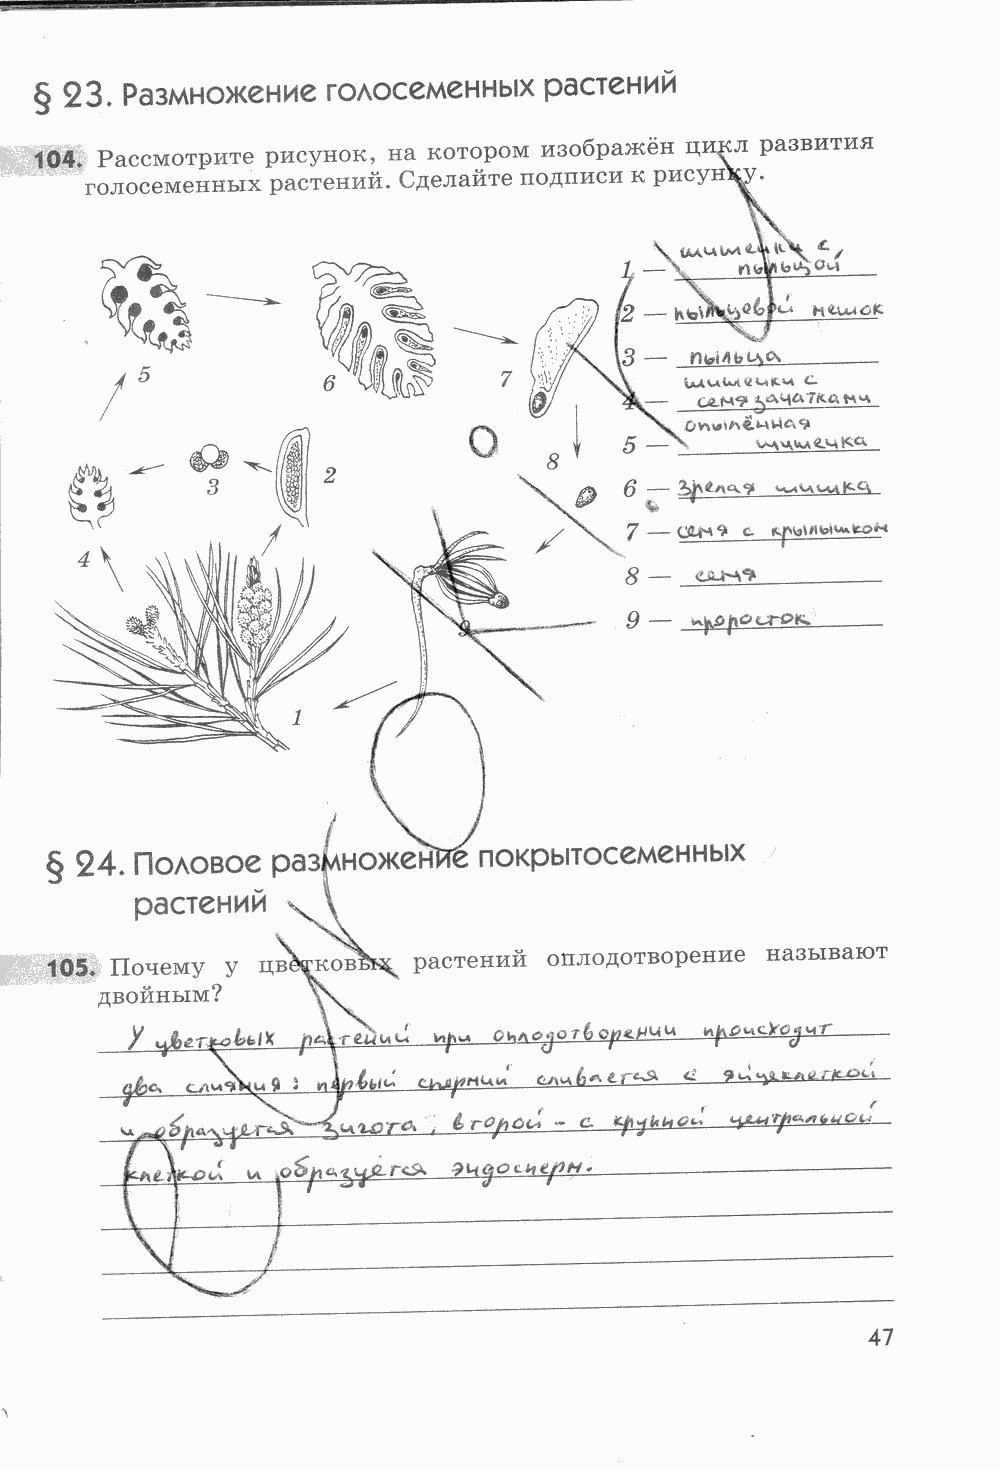 § 23. Размножение голосеменных растений
104. Рассмотрите рисунок, на котором изображён цикл развития
голосеменных растений. Сделайте подписи к рисунку.
5
6
7
8
3
2
4
9
1
1 — шишечки с
пыльцой
2 — пыльцевой мешок
3 — пыльца
4 — шишечки с
семязачатками
5 — опылённая
шишечка
6 — Зрелая шишка
7 — семя с крылышком
8 — семя
9 — проросток
§ 24. Половое размножение покрытосеменных
растений
105. Почему у цветковых растений оплодотворение называют
двойным?
У цветковых растений при оплодотворении происходит
два слияния: первый спермий сливается с яйцеклеткой
и образуется зигота, второй - с крупной центральной
клеткой и образуется эндосперм.
47